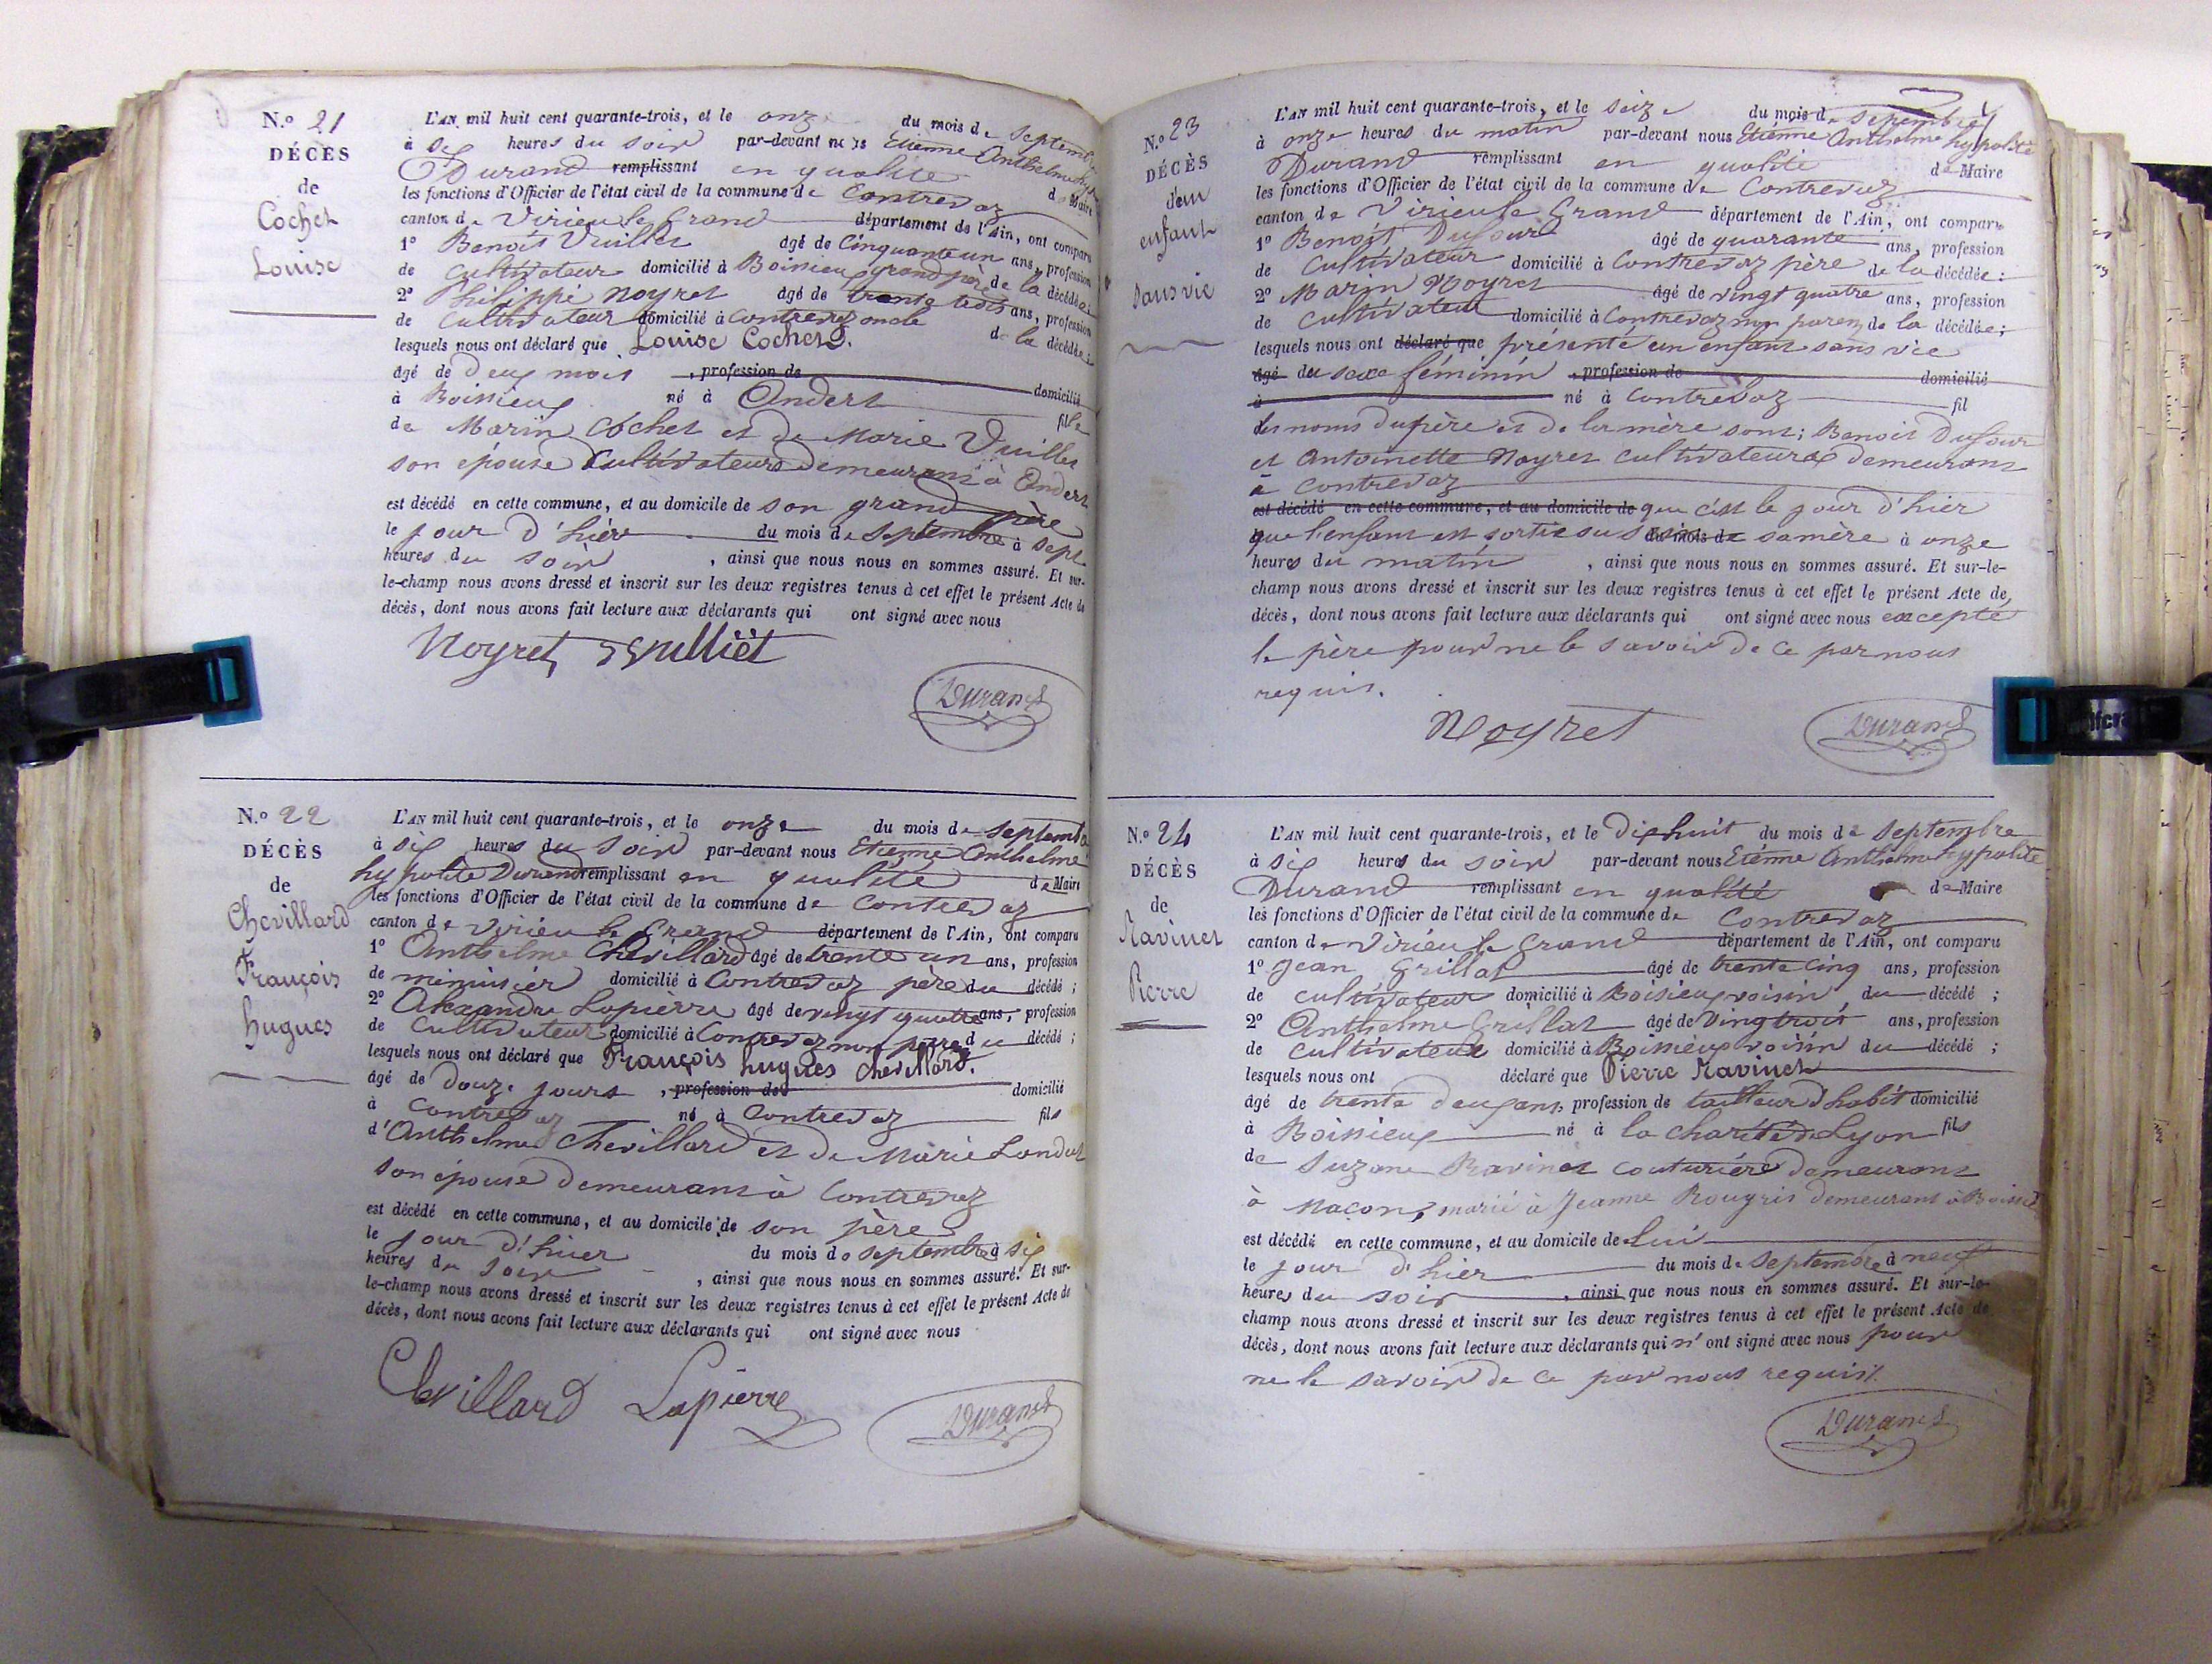 N.o 21
DÉCÈS
de
Cochet
Louise
L'AN mil huit cent quarante-trois, et le onze du mois de Septembre
à six heures du soir par-devant nous Etienne Anthelme hy
Durand remplissant en qualité de Maire
les fonctions d'Officier de l'état civil de la commune de Contrevoz
canton de Virieu le Grand département de l'Ain, ont comparu
1° Benoit Vuillet âgé de Cinquante un ans, profession
de Cultivateur domicilié à Boissieu grand père de la décédée
2° Philippe Noyret âgé de trente trois ans, profession
de Cultivateur domicilié à Contrevoz oncle de la décédée;
lesquels nous ont déclaré que Louise Cochet.
âgé de deux mois, profession de domicilié
à Boissieux né à Andert fille
de Marin Cochet et de Marie Vuillet
son épouse Cultivateurs demeurant à Andert
est décédé en cette commune, et au domicile de son grand père
le jour d'hier du mois de Septembre à sept
heures du soir, ainsi que nous nous en sommes assuré. Et sur-
le-champ nous avons dressé et inscrit sur les deux registres tenus à cet effet le présent Acte de
décès, dont nous avons fait lecture aux déclarants qui ont signé avec nous
Noyret Vulliet
Durand
N.o 22
DÉCÈS
de
Chevillard
François
hugues
L'AN mil huit cent quarante-trois, et le onze du mois de Septembre
à six heures du soir par-devant nous Etienne Anthelme
hypolite Durand remplissant en qualité de Maire
les fonctions d'Officier de l'état civil de la commune de Contrevoz
canton de Virieu le Grand département de l'Ain, ont comparu
1° Anthelme Chevillard âgé de trente un ans, profession
de menuisier domicilié à Contrevoz père du décédé;
2° Alexandre Lapierre âgé de vingt quatre ans, profession
de Cultivateur domicilié à Contrevoz non parent du décédé;
lesquels nous ont déclaré que François hugues Chevillard.
âgé de douze jours, profession de domicilié
à Contrevoz né à Contrevoz fils
d'Anthelme Chevillard et de Marie Landut
son épouse demeurant à Contrevoz
est décédé en cette commune, et au domicile de son père
le jour d'hier du mois de Septembre à six
heures du soir, ainsi que nous nous en sommes assuré. Et sur-
le-champ nous avons dressé et inscrit sur les deux registres tenus à cet effet le présent Acte de
décès, dont nous avons fait lecture aux déclarants qui ont signé avec nous
Chevillard Lapierre
Durand
N.o 23
DÉCÈS
d'un
enfant
sans vie
L'AN mil huit cent quarante-trois, et le seize du mois de Septembre
à onze heures du matin par-devant nous Etienne Anthelme hypolite
Durand remplissant en qualité de Maire
les fonctions d'Officier de l'état civil de la commune de Contrevoz
canton de Virieu le Grand département de l'Ain, ont comparu
1° Benoit Dufour âgé de quarante ans, profession
de Cultivateur domicilié à Contrevoz père de la décédée:
2° Marin Noyret âgé de vingt quatre ans, profession
de Cultivateur domicilié à Contrevoz non parent de la décédée;
lesquels nous ont déclaré que présenté un enfant sans vie
âgé du sexe féminin, profession de domicilié
à né à Contrevoz fil
les noms du père et de la mère sont; Benoit Dufour
et Antoinette Noyret cultivateurs demeurant
à Contrevoz
est décédé en cette commune, et au domicile de que c'est le jour d'hier
que l'enfant est sortie du sein du mois de sa mère à onze
heures du matin, ainsi que nous nous en sommes assuré. Et sur-le-
champ nous avons dressé et inscrit sur les deux registres tenus à cet effet le présent Acte de
décès, dont nous avons fait lecture aux déclarants qui ont signé avec nous excepté
le père pour ne le savoir de ce par nous
requis.
Noyret
Durand
N.o 24
DÉCÈS
de
Ravinet
Pierre
L'AN mil huit cent quarante-trois, et le dix huit du mois de Septembre
à six heures du soir par-devant nous Etienne Anthelme hypolite
Durand remplissant en qualité de Maire
les fonctions d'Officier de l'état civil de la commune de Contrevoz
canton de Virieu le Grand département de l'Ain, ont comparu
1° Jean Grillat âgé de trente cinq ans, profession
de cultivateur domicilié à Boissieux voisin du décédé;
2° Anthelme Grillat âgé de vingt trois ans, profession
de cultivateur domicilié à Boissieux voisin du décédé;
lesquels nous ont déclaré que Pierre Ravinet
âgé de trente deux ans, profession de tailleur d'habit domicilié
à Boissieux né à la charité de Lyon fils
de Suzane Ravinet couturière demeurant
à Macon, marié à Jeanne Rougris demeurant à
est décédé en cette commune, et au domicile de lui
le jour d'hier du mois de Septembre à neuf
heures du soir, ainsi que nous nous en sommes assuré. Et sur-le-
champ nous avons dressé et inscrit sur les deux registres tenus à cet effet le présent Acte de
décès, dont nous avons fait lecture aux déclarants qui n'ont signé avec nous pour
ne le savoir de ce par nous requis.
Durand